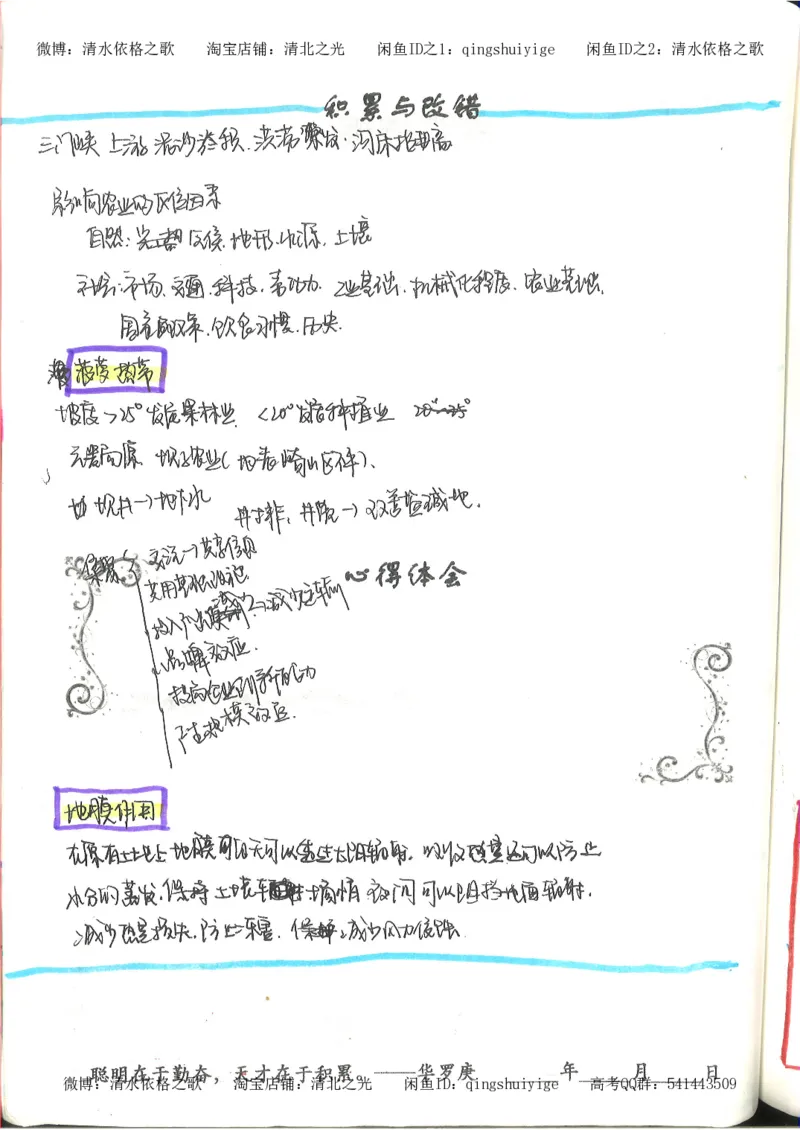 微博：清水依格之歌 淘宝店铺：清北之光 闲鱼ID之1：qingshuiyige 闲鱼ID之2：清水依格之歌
积累与改错
三门峡 上游 泥沙淤积. 河床抬高
影响农业的区位因素
自然: 气候. 地形. 水源. 土壤
社会: 市场. 交通. 科技. 劳动力. 工业基础. 机械化程度. 农业基础.
国家政策. 饮食习惯. 历史.
坡度 >25° 发展果林业. <20° 发展种植业 20°-25°
云贵高原 坝子农业(地势崎岖区
井排, 井灌→改善盐碱地.
交流→共享信息
共用基础设施
心得体会
减少运输
品牌效应.
提高企业创新能力
产生规模效应.
地膜作用
在原有土地上 地膜 白天可以透过太阳辐射, 还可以防止
水分的蒸发, 保持土壤 墒情 夜间可以阻挡地面辐射.
减少热量损失, 防止冻害. 减少风力侵蚀
聪明在于勤奋，天才在于积累。——华罗庚 年 月 日
微博：清水依格之歌 淘宝店铺：清北之光 闲鱼ID：qingshuiyige 高考QQ群：541443509